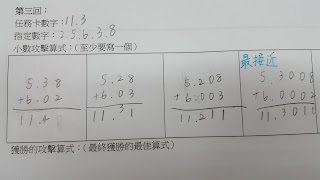 第三回：
任務卡數字：11.3
指定數字：2.5.6.3.8
小數攻擊算式：(至少要寫一個)
最接近
5.38 5.28 5.208 5.3008
+6.02 +6.03 +6.003 +6.0002
11.4 11.31 11.211 11.3010
獲勝的攻擊算式：(最終獲勝的最佳算式)